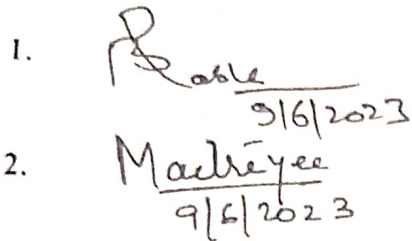 1.
9/6/2023
2. Maitreyee
9/6/2023